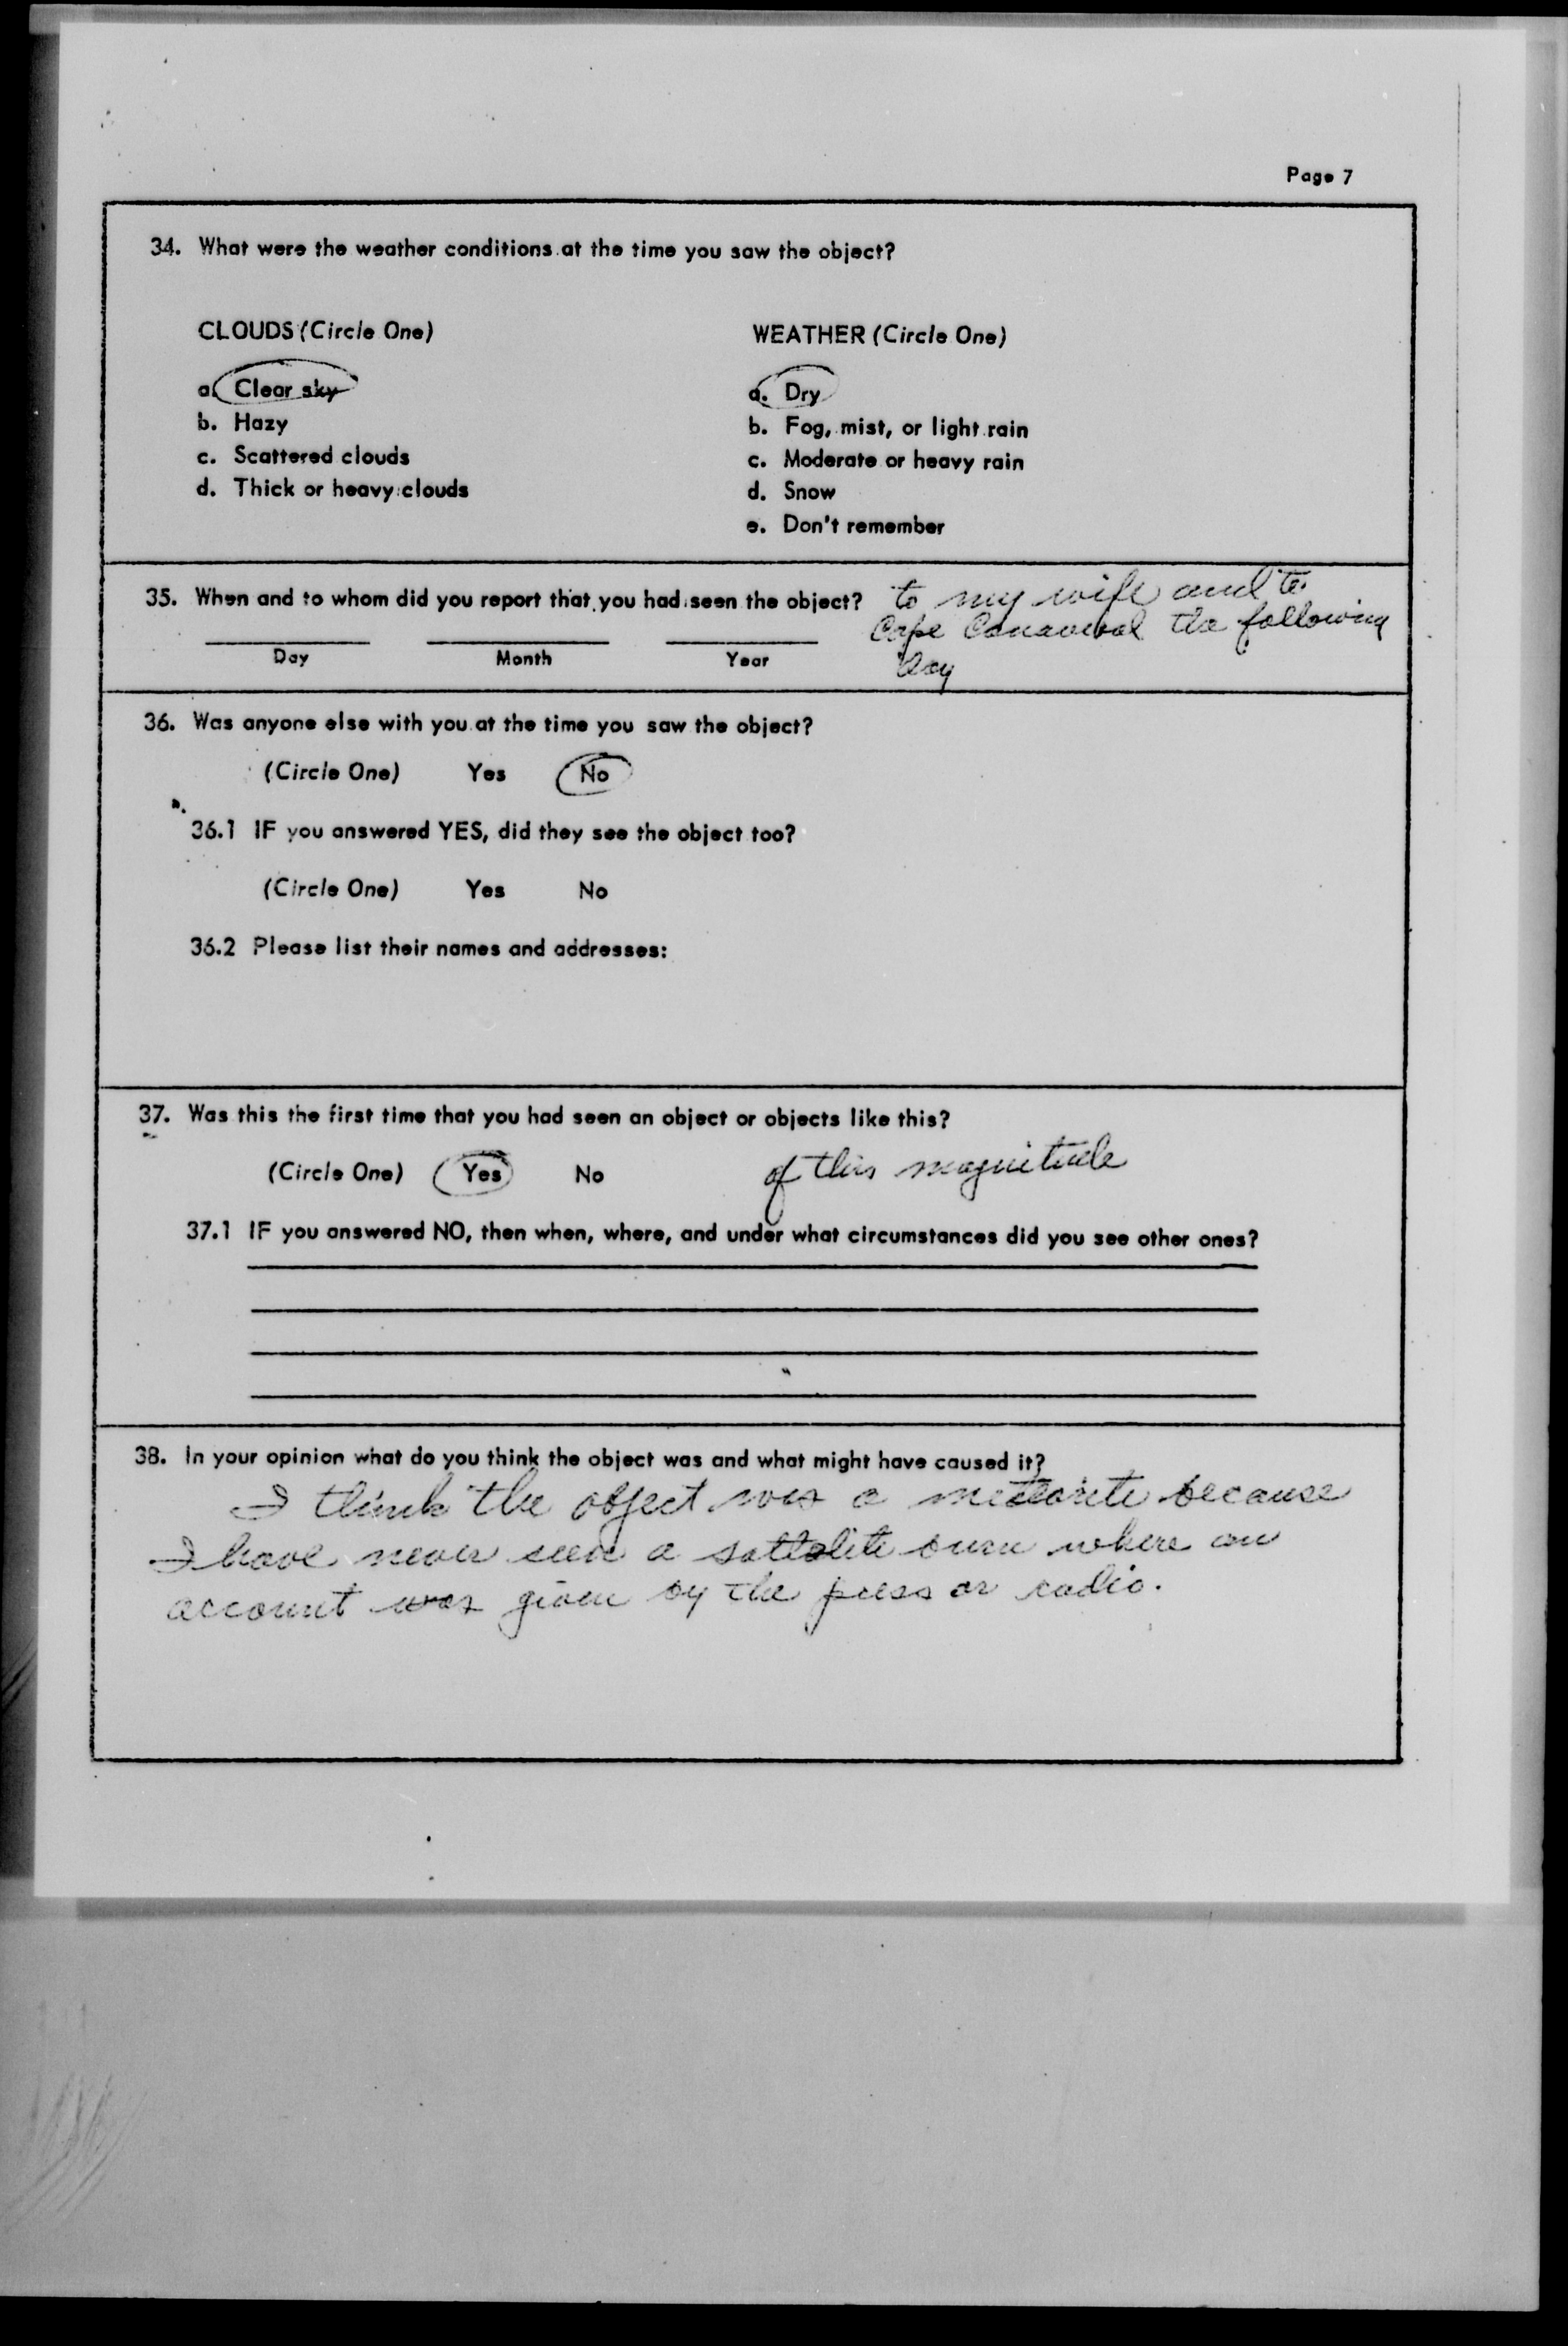 Page 7
34. What were the weather conditions at the time you saw the object?
CLOUDS (Circle One)
a. Clear sky
b. Hazy
c. Scattered clouds
d. Thick or heavy clouds
WEATHER (Circle One)
a. Dry
b. Fog, mist, or light rain
c. Moderate or heavy rain
d. Snow
e. Don't remember
35. When and to whom did you report that you had seen the object?
to my wife and to
Cape Canaveral the following
day
Day Month Year
36. Was anyone else with you at the time you saw the object?
(Circle One) Yes No
36.1 IF you answered YES, did they see the object too?
(Circle One) Yes No
36.2 Please list their names and addresses:
37. Was this the first time that you had seen an object or objects like this?
(Circle One) Yes No of this magnitude
37.1 IF you answered NO, then when, where, and under what circumstances did you see other ones?
38. In your opinion what do you think the object was and what might have caused it?
I think the object was a meteorite because
I have never seen a sattelite burn where an
account was given by the press or radio.